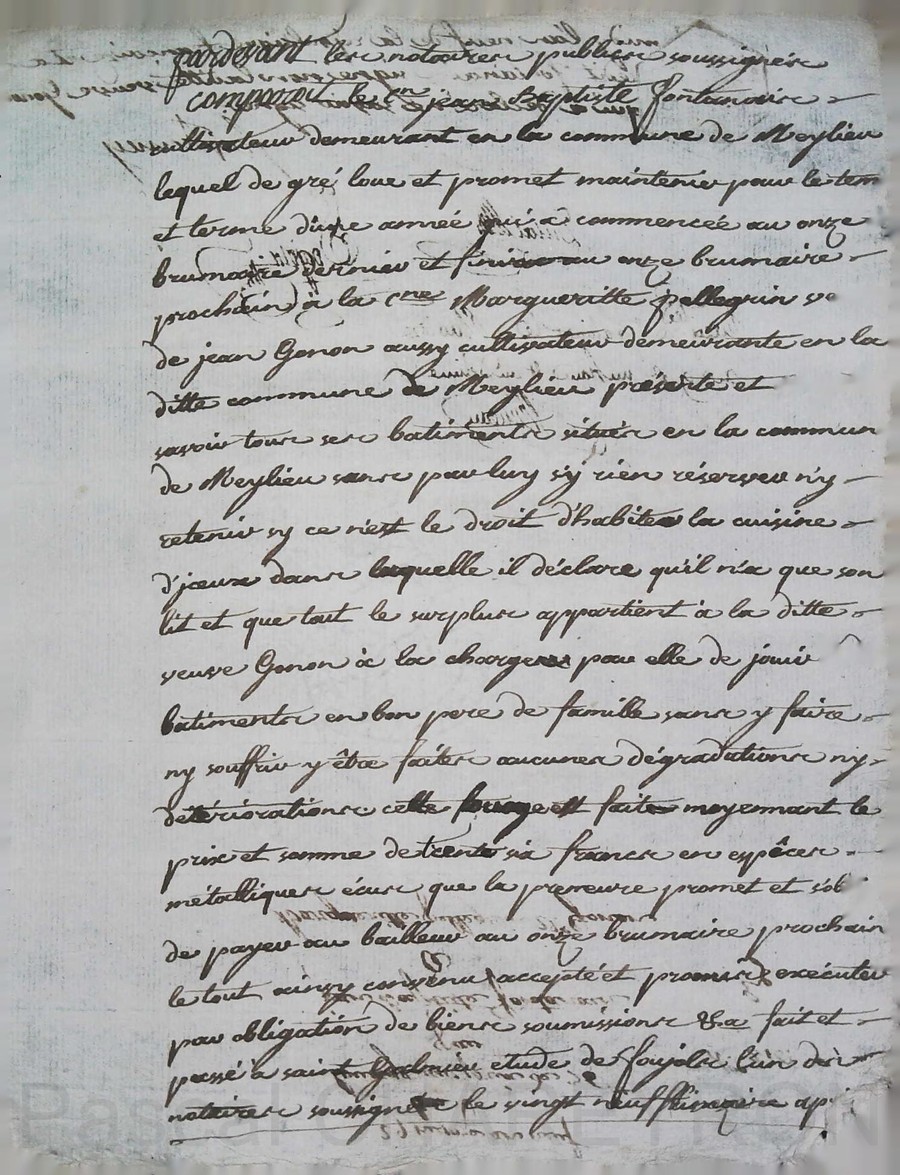 pardevant les notaires publics soussignés
comparoit le c.en jean Baptiste fontanaire
cultivateur demeurant en la commune de Meylieu
lequel de gré loue et promet maintenir pour le tem
et terme d'une année qui a commencée au onze
brumaire dernier et finira au onze brumaire
prochain à la c.ne Margueritte pellegrin ve
de jean Gonon aussy cultivateur demeurante en la
ditte commune de Meylieu présente et
savoir tous ses batiments situés en la commun
de Meylieu sans par luy s'y rien réserver n'y
retenir sy ce n'est le droit d'habiter la cuisine
dans laquelle il déclare qu'il n'a que son
lit et que tout le surplus appartient à la ditte
veuve Gonon à la charge par elle de jouir
batiments en bon pere de famille sans y faire
ny souffrir y être faites aucunes dégradations ny
détériorations cette est faite moyennant le
prix et somme de trente six francs en espêces
métalliques écus que la preneure promet et s'ob
de payer au bailleur au onze brumaire prochain
le tout ainsy convenu accepté et promis exécuter
par obligation de biens soumissions &a fait et
passé a saint Galmier etude de foujols l'un des
notaires soussignés le vingt neuf frimaire ap